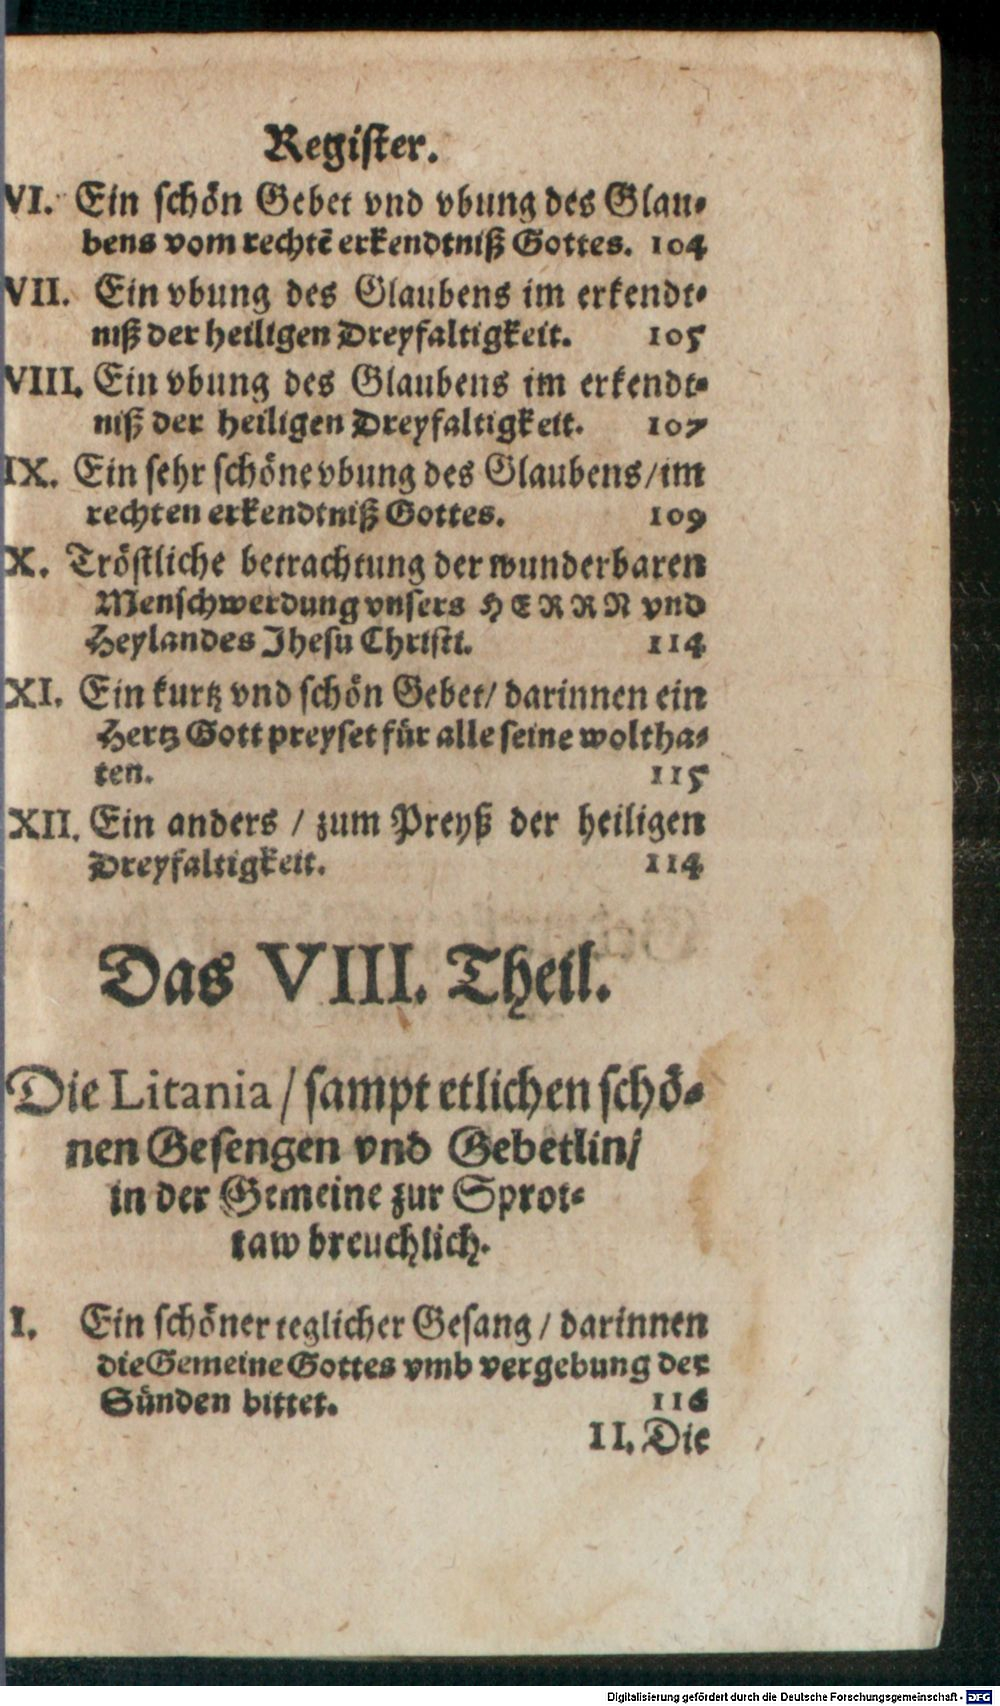 Register.
VI. Ein schön Gebet vnd vbung des Glau-
bens vom rechtē erkendtniß Gottes. 104
VII. Ein vbung des Glaubens im erkendt-
niß der heiligen Dreyfaltigkeit. 105
VIII. Ein vbung des Glaubens im erkendt-
niß der heiligen Dreyfaltigkeit. 107
IX. Ein sehr schöne vbung des Glaubens/im
rechten erkendtniß Gottes. 109
X. Tröstliche betrachtung der wunderbaren
Menschwerdung vnsers HERRN vnd
Heylandes Jhesu Christi. 114
XI. Ein kurtz vnd schön Gebet/ darinnen ein
Hertz Gott preyset für alle seine woltha-
ten. 115
XII. Ein anders / zum Preyß der heiligen
Dreyfaltigkeit. 114
Das VIII. Theil.
Die Litania / sampt etlichen schö-
nen Gesengen vnd Gebetlin/
in der Gemeine zur Sprot-
taw breuchlich.
I. Ein schöner teglicher Gesang / darinnen
die Gemeine Gottes vmb vergebung der
Sünden bittet. 116
II. Die
Digitalisierung gefördert durch die Deutsche Forschungsgemeinschaft - DFG